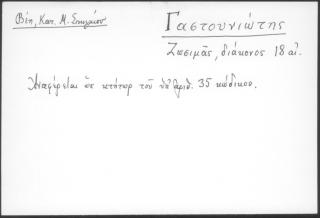 Βέη, Κατ. Μ. Σπηλαίου
Γαστουνιώτης
Ζωσιμᾶς, διάκονος 18 αἰ.
Ἀναφέρεται ὡς κτήτωρ τοῦ ὑπ' ἀριθ. 35 κώδικος.